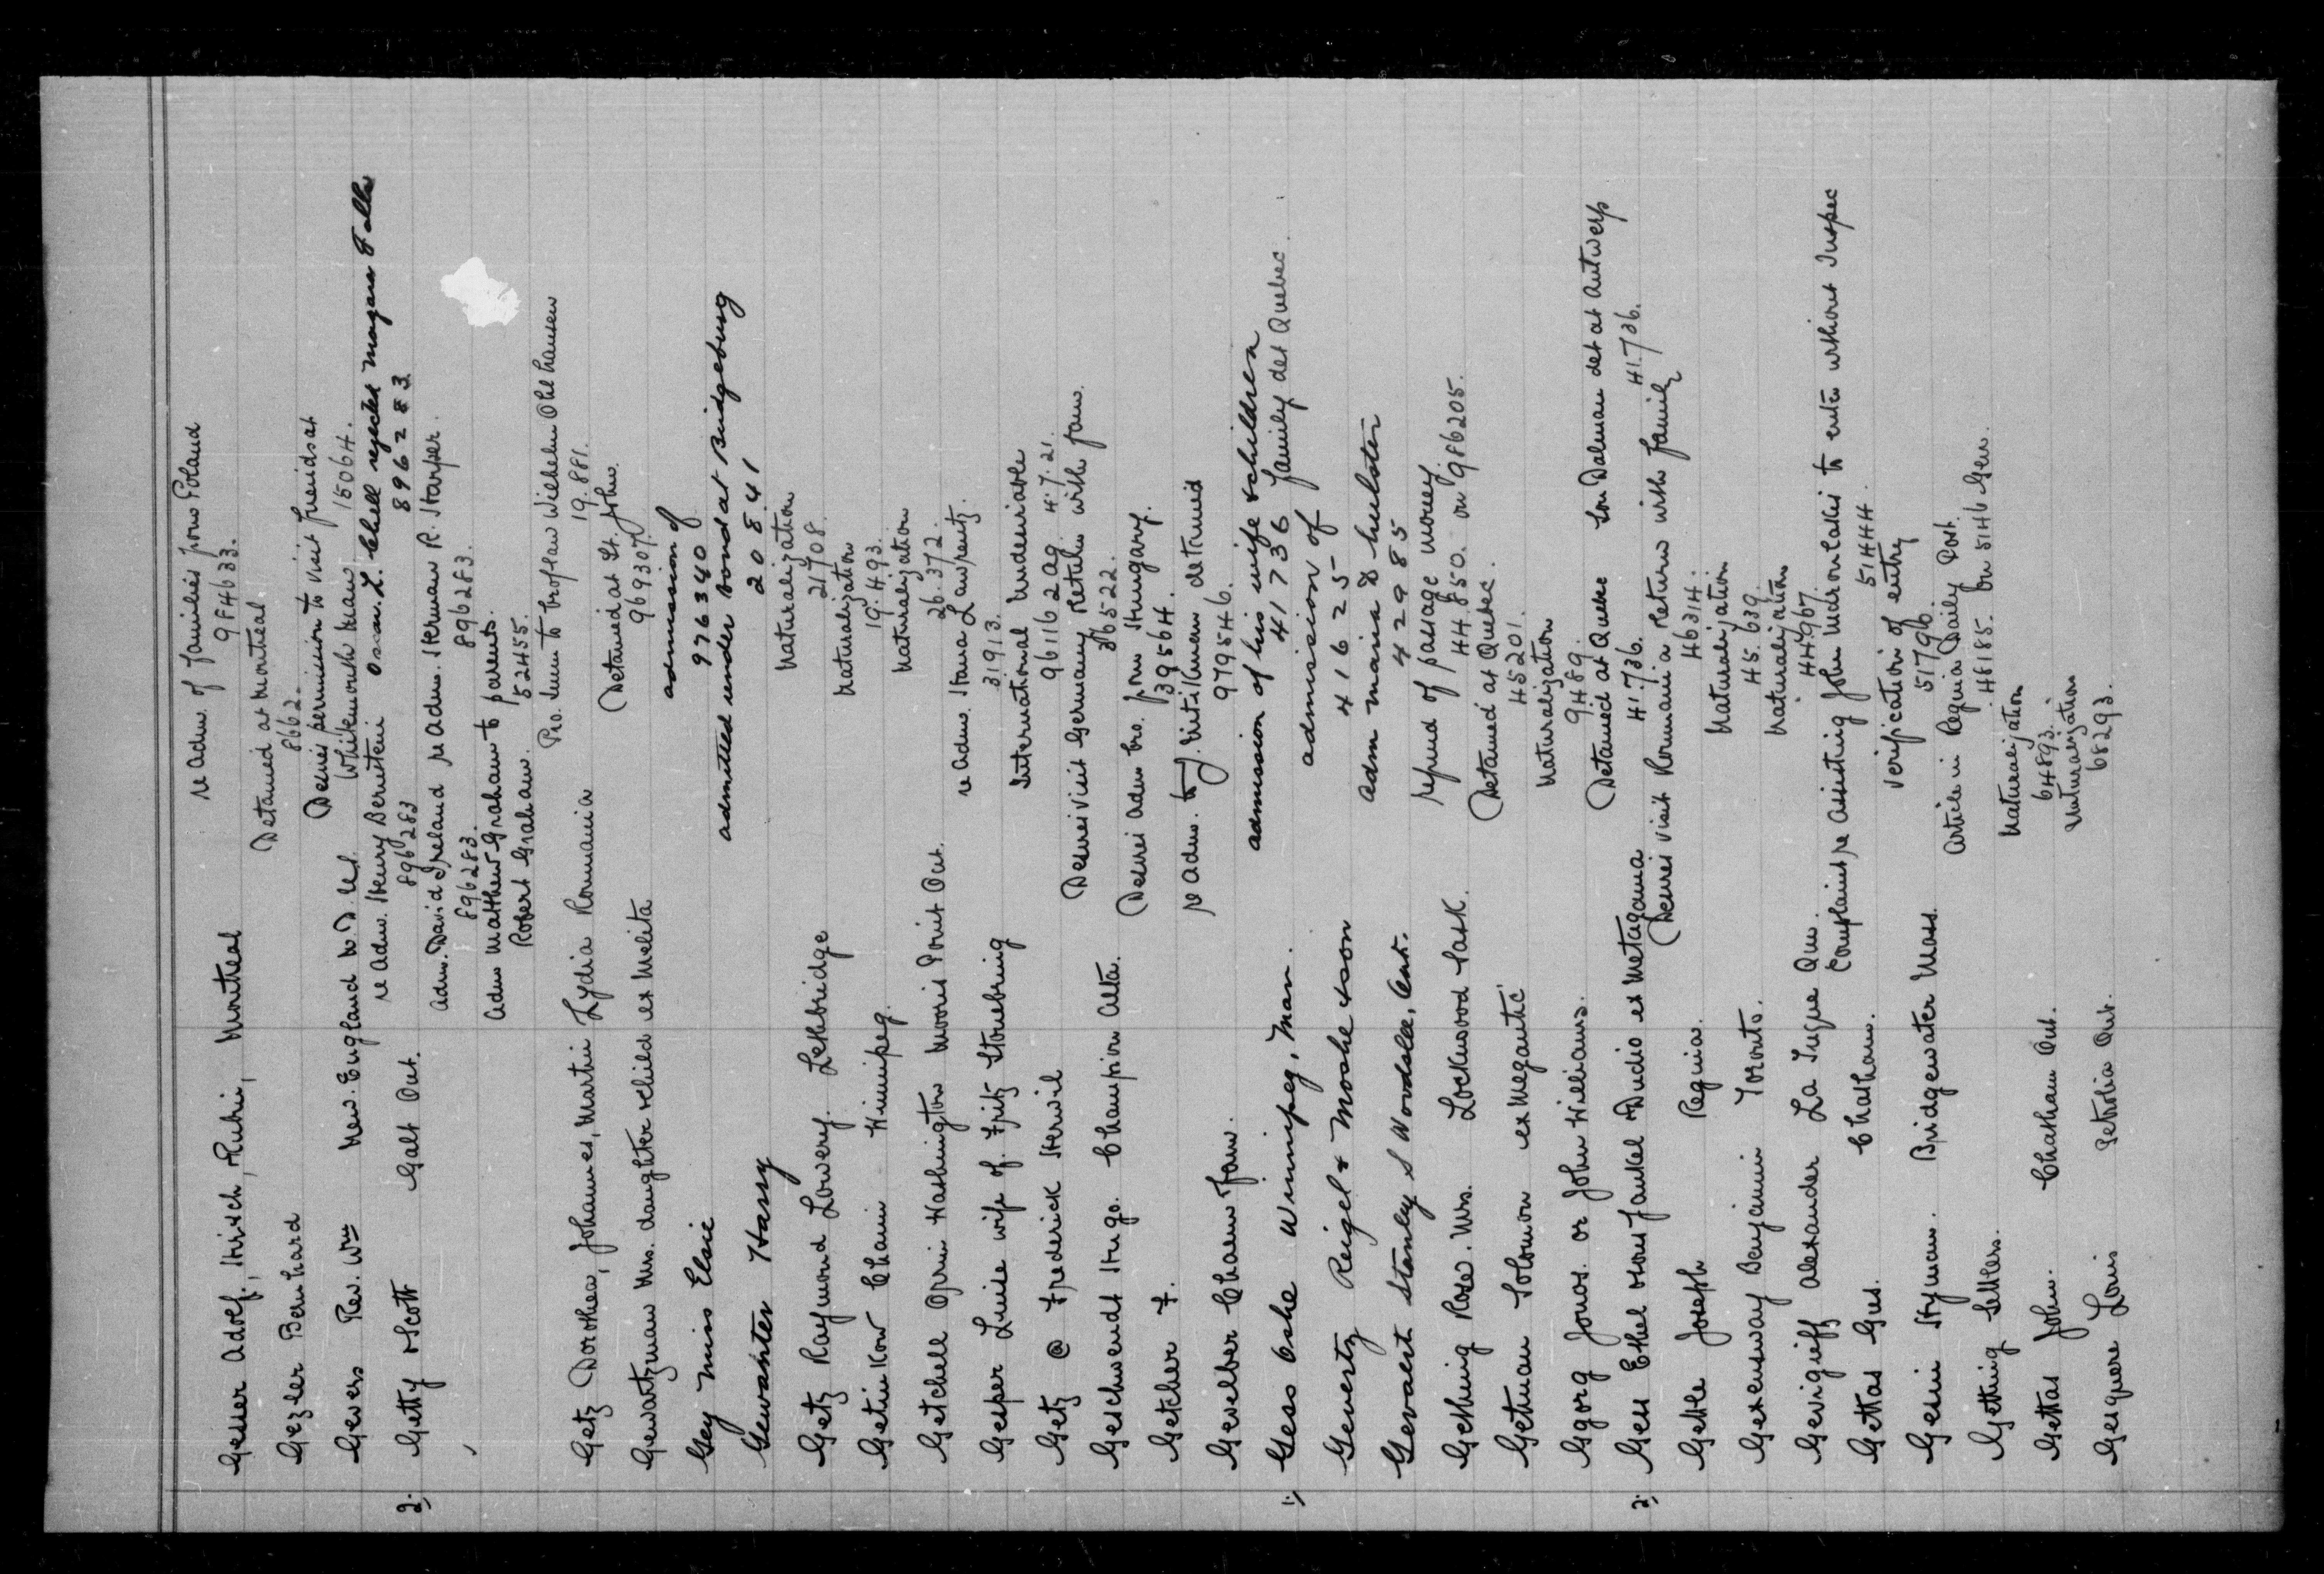 Gesser Adolf, Hirsch, Rubin, Montreal re Adm. of families from Poland
984633.
Gezler Bernhard Detained at Montreal
8662.
Gevers Rev. Wm New England N.D. U.S. Desires permission to visit friends at
Whitemouth Man 15064.
2. Getty Scott Galt Ont. re Adm. Henry Bernstein Oscar L. Chell rejected Niagara Falls
896283 896283
Adm. David Ireland re Adm. Herman R. Harper.
896283. 896283.
Adm Matthew Graham to parents.
Robert Graham. 52455.
Getz Dorothea, Johannes, Martin Lydia Romania Pro. Imm to Croflaw Wilhelm Ohlhausen
19.881.
Gewartzman Mrs. daughter & child ex Melita Detained at St. John.
969307.
Gey Miss Elsie admission of
976340
Gewanter Harry admitted under bond at Bridgeburg
20841
Getz Raymond Lowery Lethbridge Naturalization
21708.
Getin Kow Chain Winnipeg. Naturalization
19.493.
Getchell Orrin Washington Morris Point Ont. Naturalization
26.372.
Gesper Luise wife of. Fritz Stonebring re Adm. Hana Lawrentz.
31913.
Getz @ Frederick Herwil International Undesirable
961162 Ag. 4.7.21.
Geschwendt Hugo. Champion Alta. Desires visit Germany Return with fam.
36522.
Getcher F. Desires Adm bro. from Hungary.
39564.
Gevelber Chaim Fam. re Adm. detained
979546.
1. Gess Oshe Winnipeg, Man. admission of his wife & children
41736 family det Quebec.
Gevertz Reigel & Moshe & son admission of
41625
Gevaert Stanley S Woodslee, Ont. Adm Maria D hulster
42985
Gething Rose. Mrs. Lockwood Sask. refund of passage money.
44.850. on 986205.
Getman Solomon ex Megantic Detained at Quebec.
45201.
Ggorg Jonos. or John Williams. Naturalization
9489.
2. Gess Ethel & sons Jankel & Dudio ex Metagama Detained at Quebec Son Dalman det at Antwerp
41.736. 41.736.
Gette Joseph Regina. Desires visit Romania Return with family
46314.
Getxensway Benjamin Toronto. Naturalization
45.639.
Gevigrieff Alexander La Tuque Que. Naturalization
44.967.
Gettas Gus. Chatham. Complaint re Assisting John to enter without Inspec
51444.
Gesin Hyman. Bridgewater Mass. Verification of entry
51796.
Getting Settlers. Article in Regina Daily Post.
46185. on 5146 Gen.
Gettas John. Chatham Ont. Naturalization
64893.
Gesquere Louis Petrolia Ont. Naturalization
68293.